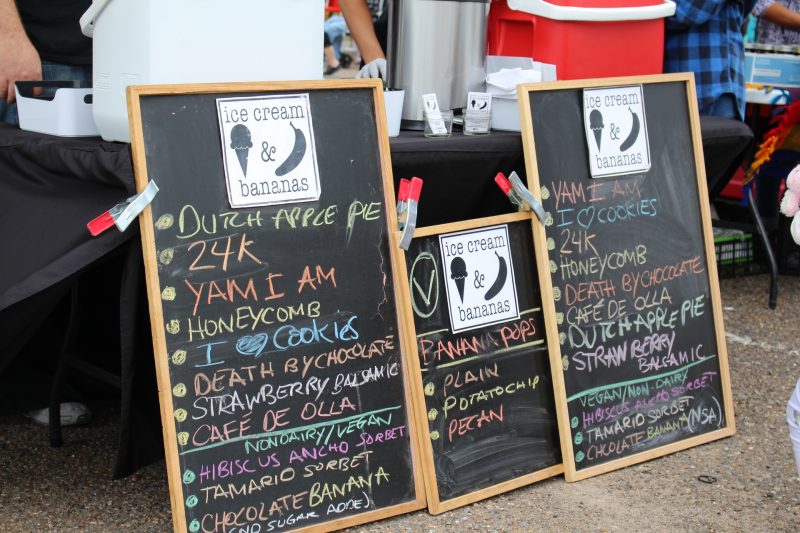 ice cream
&
bananas
DUTCH APPLE PIE
24K
YAM I AM
HONEYCOMB
I ♡ COOKIES
DEATH BY CHOCOLATE
STRAWBERRY BALSAMIC
CAFÉ DE OLLA
NONDAIRY/VEGAN
HIBISCUS ANCHO SORBET
TAMARIO SORBET
CHOCOLATE BANANA
(NO SUGAR ADDED)
ice cream
&
bananas
BANANA POPS
PLAIN
POTATO CHIP
PECAN
ice cream
&
bananas
YAM I AM
I ♡ COOKIES
24K
HONEYCOMB
DEATH BY CHOCOLATE
CAFÉ DE OLLA
DUTCH APPLE PIE
STRAWBERRY
BALSAMIC
VEGAN/NON-DAIRY
HIBISCUS ANCHO SORBET
TAMARIO SORBET
CHOLATE BANANA (NSA)